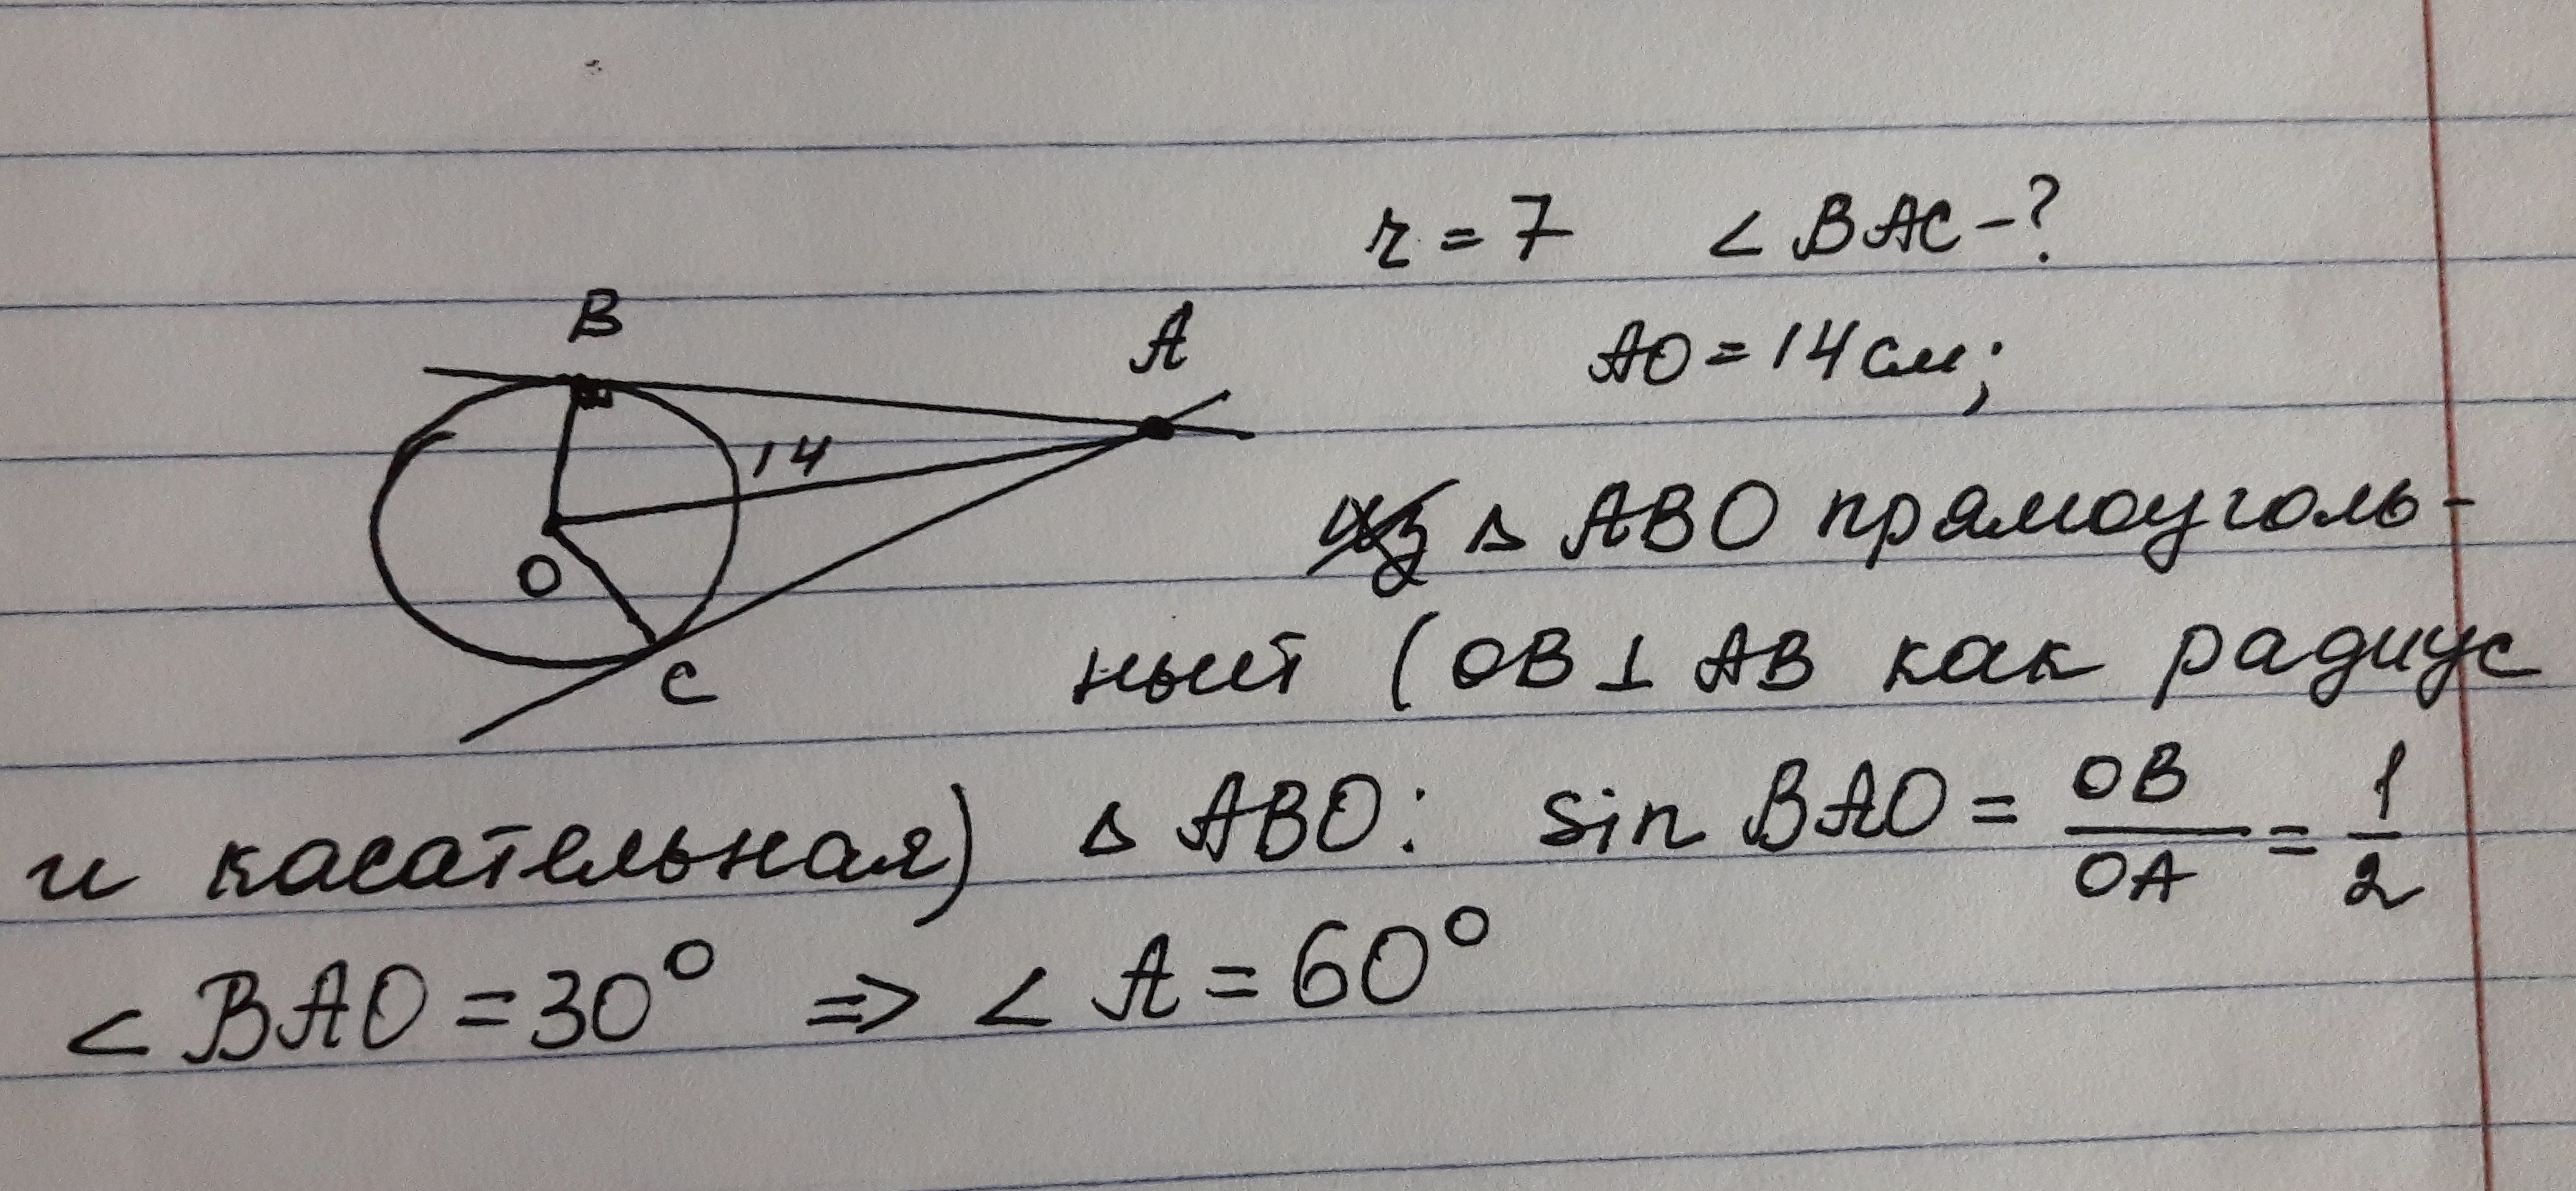 r = 7   < BAC - ?
B
A
AO = 14 см;
14
из ∆ ABO прямоуголь-
O
ный ( OB ⊥ AB как радиус
C
и касательная) ∆ ABO: sin BAO = OB/OA = 1/2
< BAO = 30° => < A = 60°